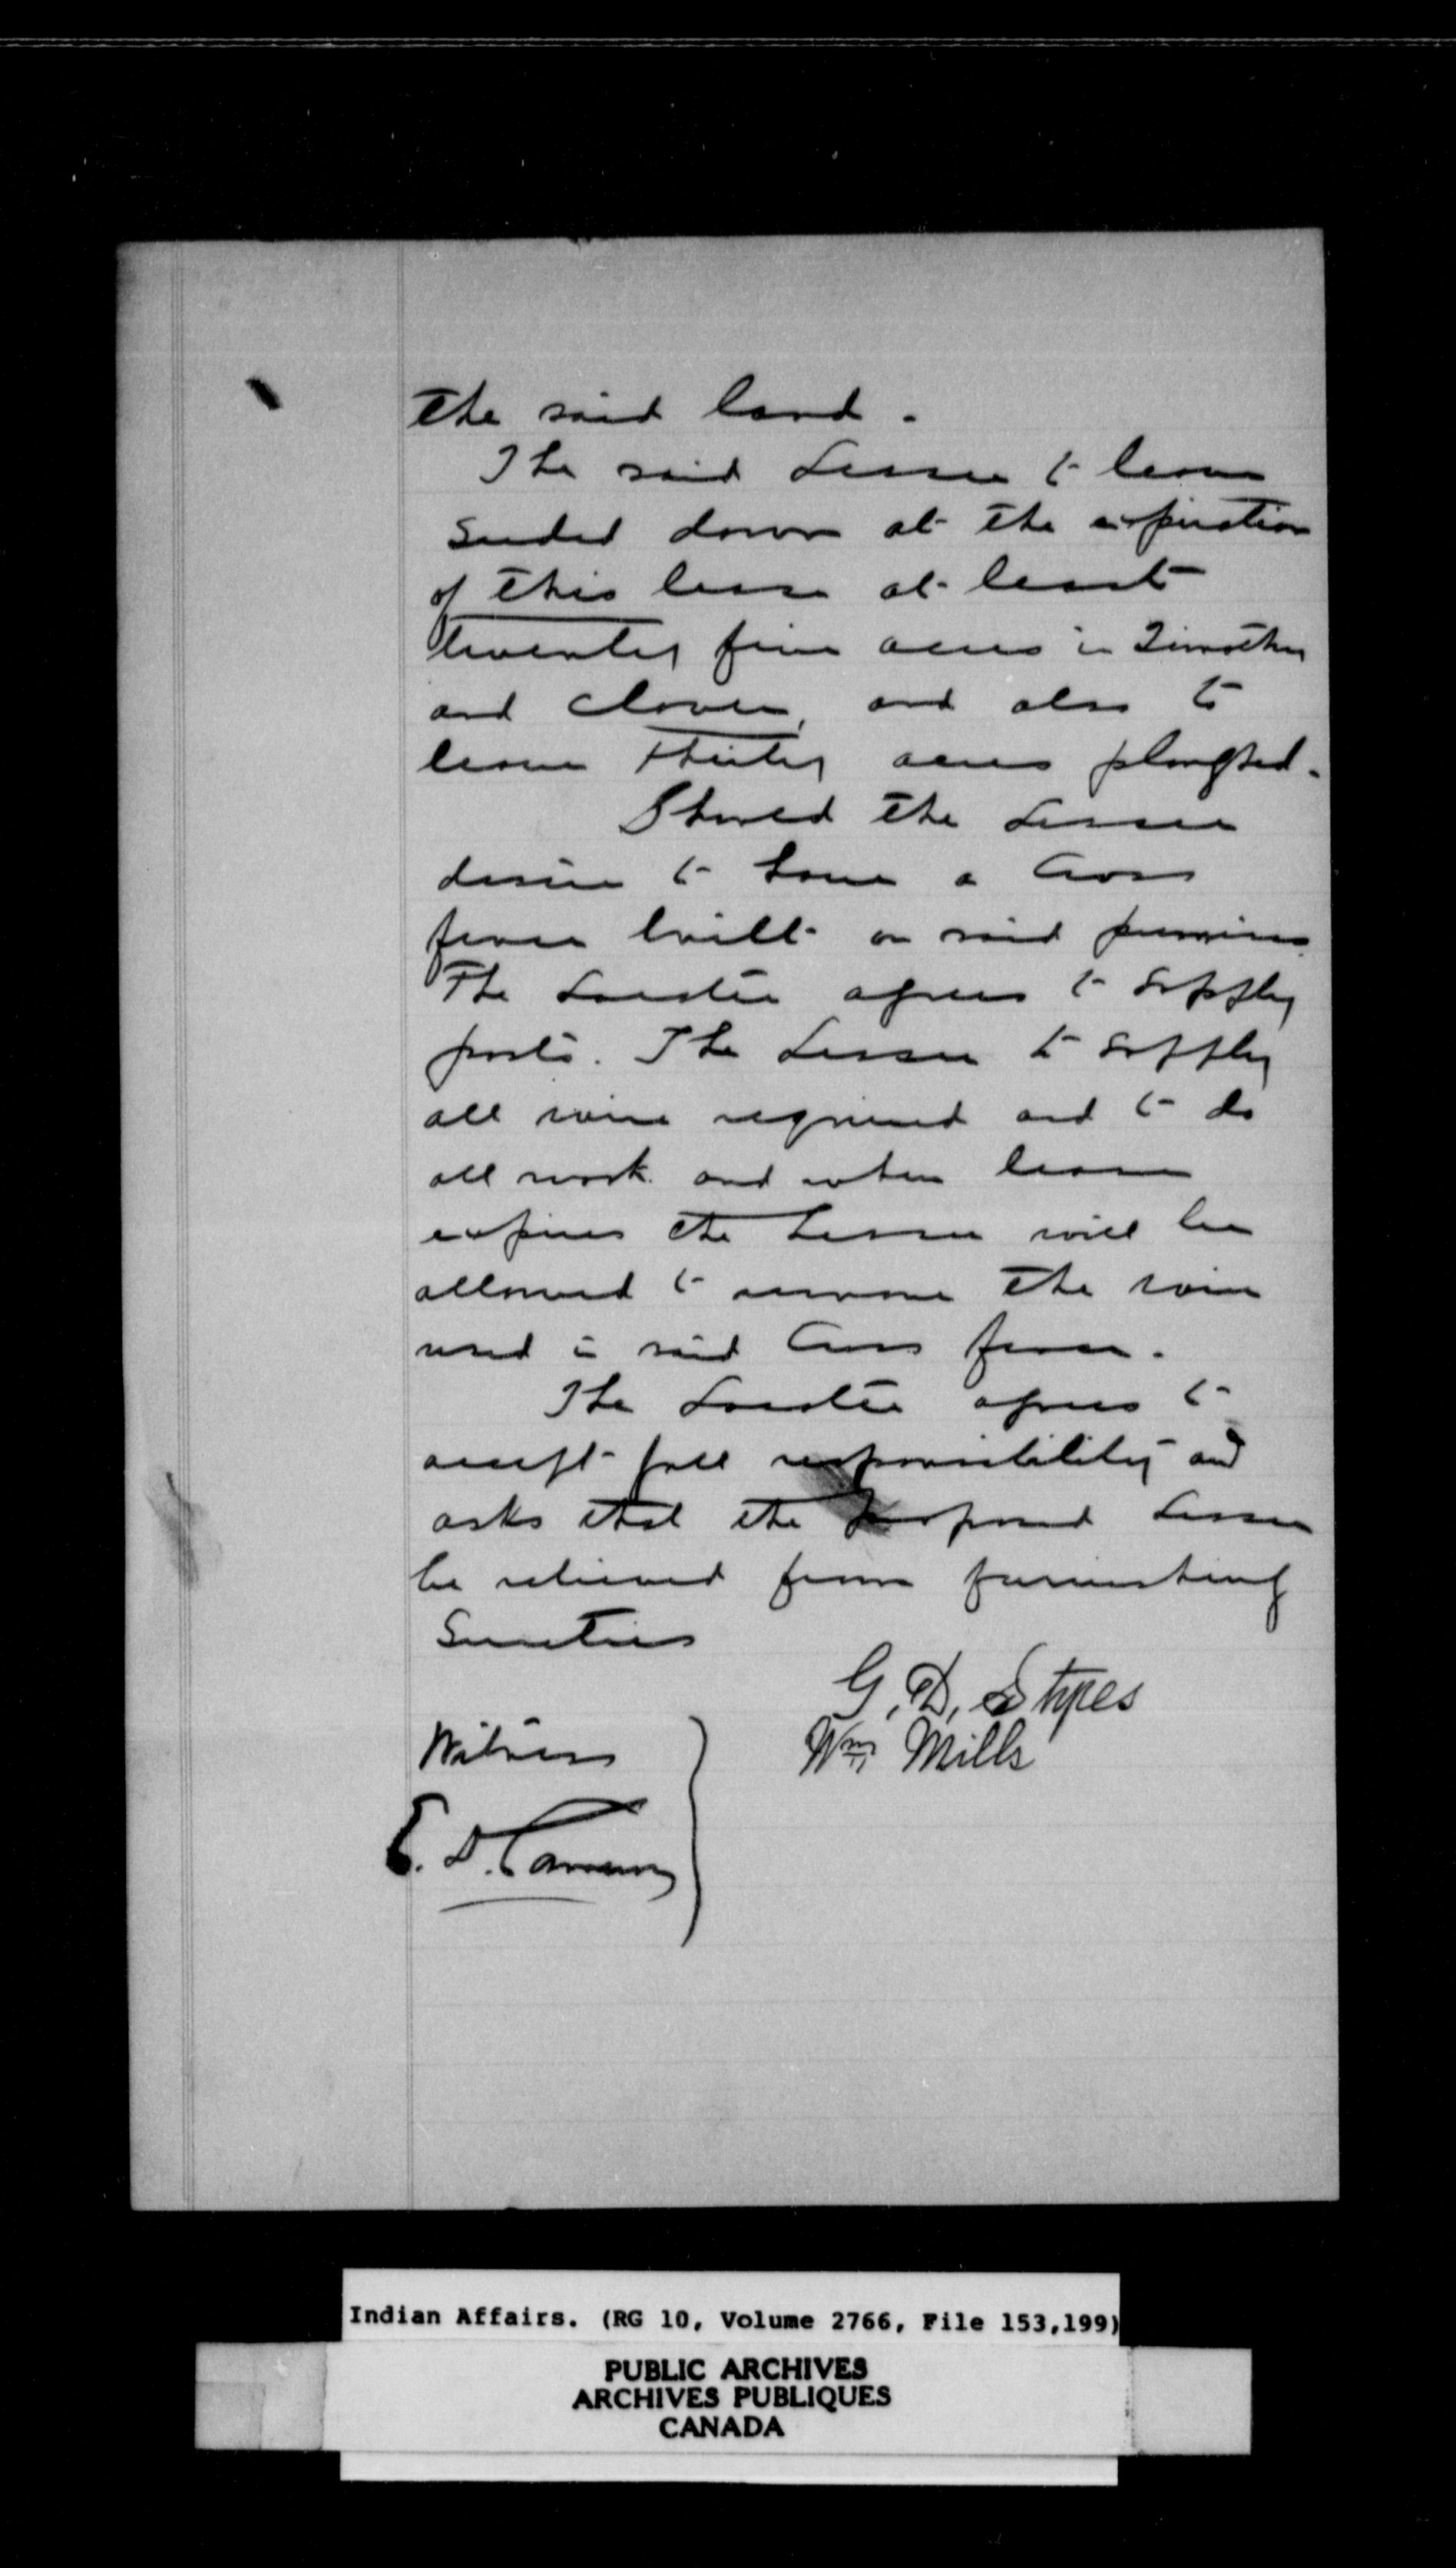 the said land.
The said Lessee to leave
seeded down at the expiration
of this lease at least
twenty five acres in Timothy
and clover, and also to
leave thirty acres ploughed.
Should the Lessee
desire to have a cross
fence built on said premises
The Locatee agrees to supply
posts. The Lessee to supply
all wire required and to do
all work and when lease
expires the Lessee will be
allowed to remove the wire
used in said cross fence.
The Locatee agrees to
accept full responsibility and
asks that the proposed Lessee
be relieved from furnishing
Sureties
G. D. Stypes
Wm Mills
Witness
E. D. Cameron
Indian Affairs. (RG 10, Volume 2766, File 153,199)
PUBLIC ARCHIVES
ARCHIVES PUBLIQUES
CANADA